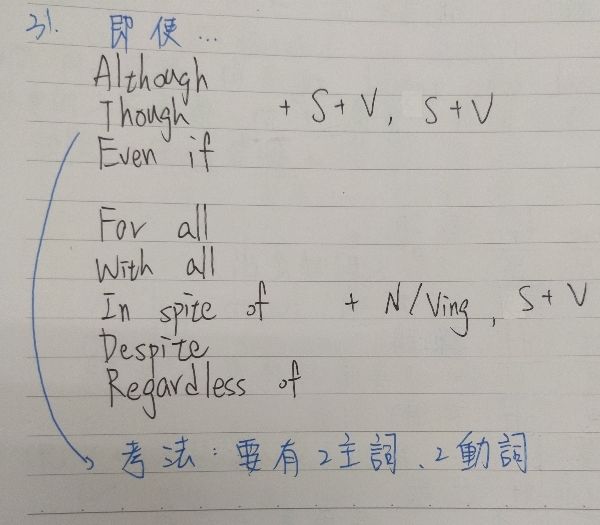 31. 即使...
Although
Though + S + V, S + V
Even if
For all
With all
In spite of + N/Ving, S + V
Despite
Regardless of
考法：要有2主詞、2動詞